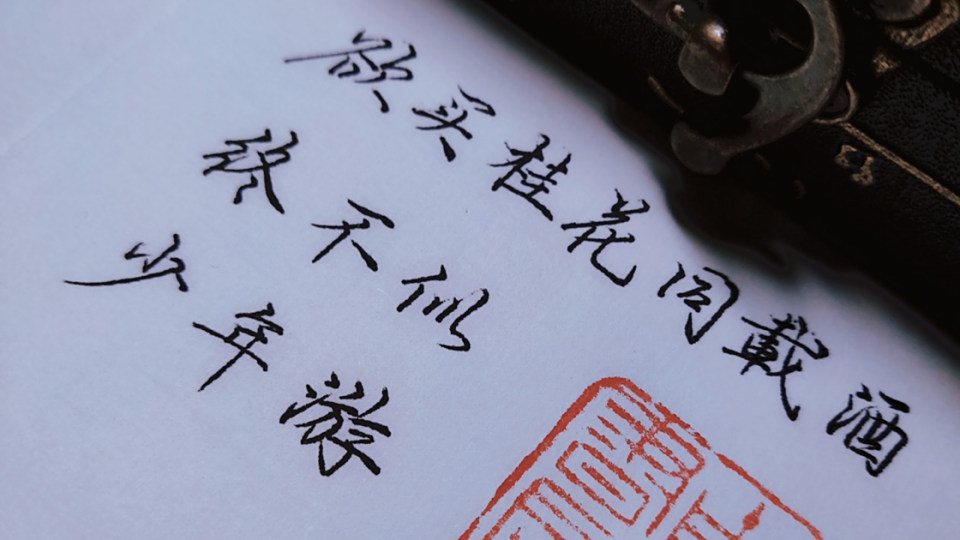 欲买桂花同载酒
终不似
少年游